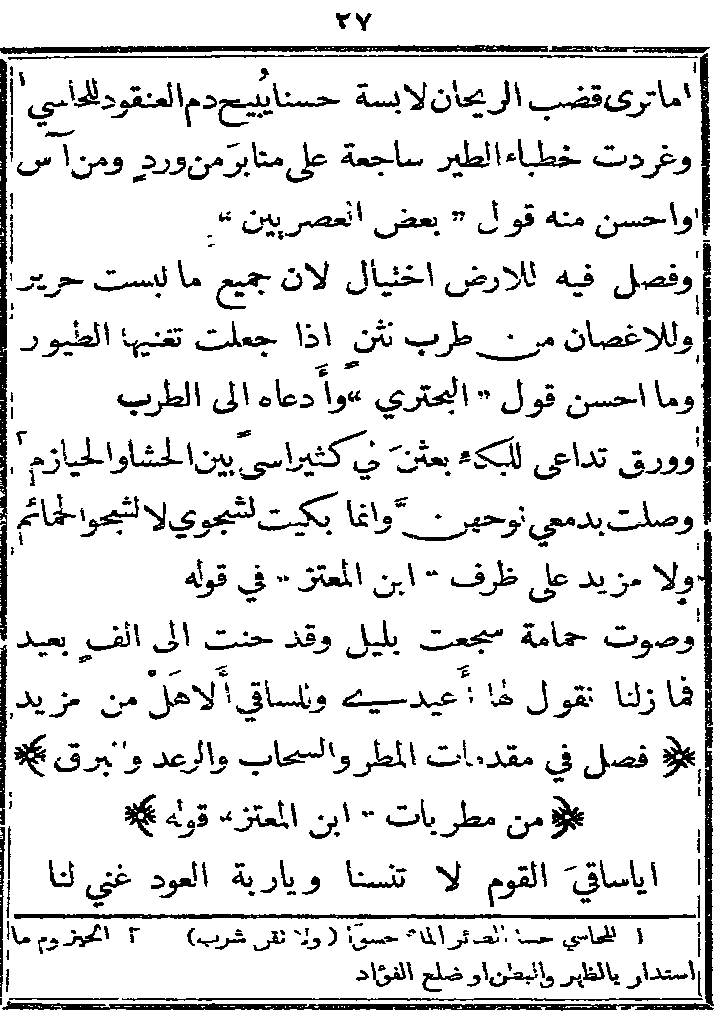 ٢٧
اما ترى قضب الريحان لابسة حسنا يُبيح دم العنقود للحاسي ١
وغردت خطباء الطير ساجعة على منابرَ من وردٍ ومن آس
واحسن منه قول « بعض العصريين »
وفصل فيه للارض اختيال لان جميع ما لبست حرير
وللاغصان من طرب تثنٍ اذا جعلت تغنيها الطيور
وما احسن قول « البحتري » وأدعاه الى الطرب
وورق تداعى للبكاء بعثن في كثير اسىً بين الحشا والحيازم ٢
وصلت بدمعي نوحهن وانما بكيت لشجوي لا لشجو الحمائم
ولا مزيد على ظرف « ابن المعتز » في قوله
وصوت حمامة سجعت بليل وقد حنت الى الفٍ بعيد
فما زلنا نقول لها أعيدي وللساقي ألا هَلْ من مزيد
﴿ فصل في مقدمات المطر والسحاب والرعد والبرق ﴾
﴿ من مطربات « ابن المعتز » قوله ﴾
اياساقيَ القوم لا تنسنا وياربة العود غني لنا
١ للحاسي حسا الطائر الماء حسوًا (ولا تقل شرب) ٢ الحيزوم ما
استدار بالظهر والبطن او ضلع الفؤاد